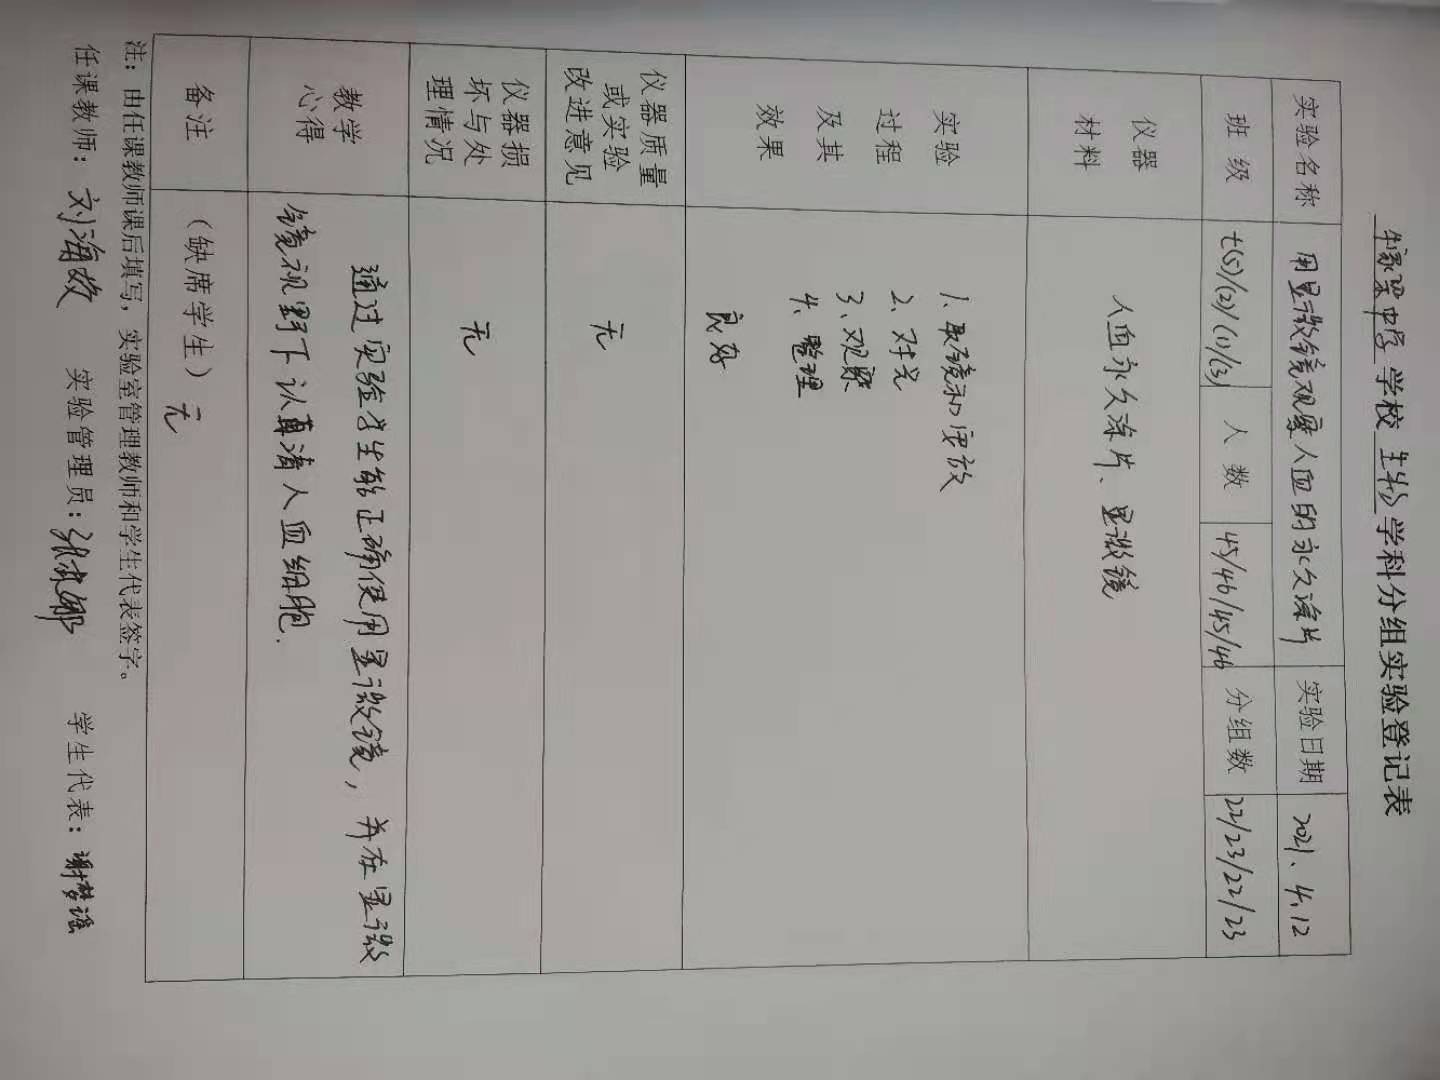 牛家梁中学 学校 生物 学科分组实验登记表
实验名称 用显微镜观察人血的永久涂片 实验日期 2021、4.12
班级 七(5)/(2)/(1)/(3) 人数 45/46/45/46 分组数 22/23/22/23
仪器
材料
人血永久涂片、显微镜
实验
过程
及其
效果
1、取镜和安放
2、对光
3、观察
4、整理
良好
仪器质量
或实验
改进意见
无
仪器损
坏与处
理情况
无
教学
心得
通过实验学生能正确使用显微镜，并在显微
镜视野下认真清人血细胞.
备注
（缺席学生）无
注：由任课教师课后填写，实验室管理教师和学生代表签字。
任课教师：刘海姣 实验管理员：张 娜 学生代表：谢梦瑶